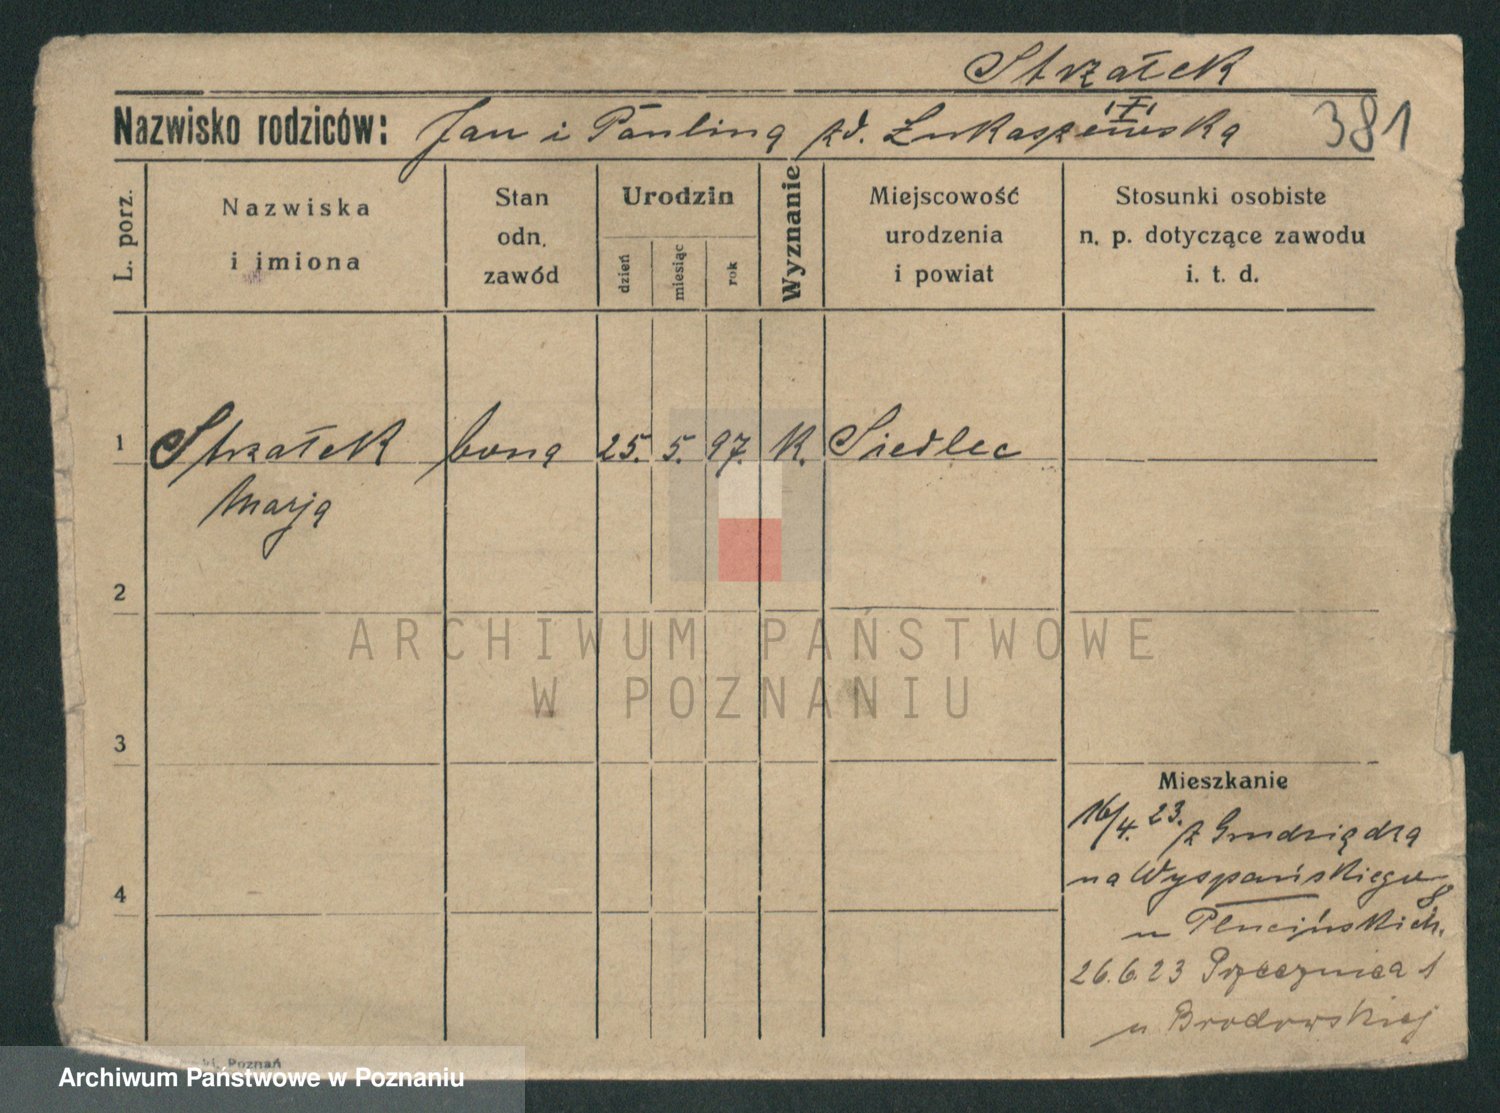 Strzałek
Nazwisko rodziców: Jan i Paulina zd. Łukaszewska 381
L. porz.
Nazwiska
i imiona
Stan
odn.
zawód
Urodzin
dzień
miesiąc
rok
Wyznanie
Miejscowość
urodzenia
i powiat
Stosunki osobiste
n. p. dotyczące zawodu
i. t. d.
1 Strzałek bona 25. 5. 97. K. Siedlec
Marja
2
ARCHIWUM PAŃSTWOWE
W POZNANIU
3
Mieszkanie
16/4. 23. z Grudziądza
4
na Wyspańskiego 8
u Plucińskich.
26.6.23 Przecznica 1
u Brodowskiej
Poznań
Archiwum Państwowe w Poznaniu